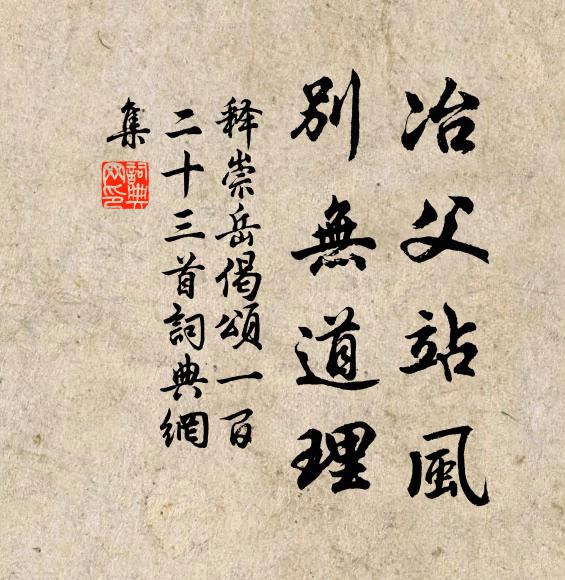 冶父站風
別無道理
释崇岳偈頌一百
二十三首詞典網
集
詞典
网印